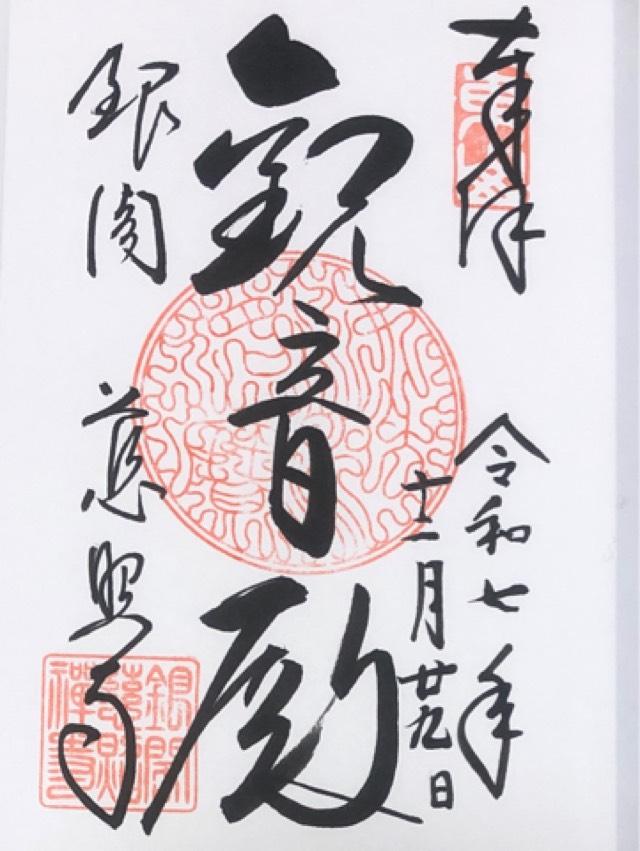 奉拝
令和七年
十二月廿九日
観音殿
銀閣
慈照寺
銀閣
慈照
禅寺